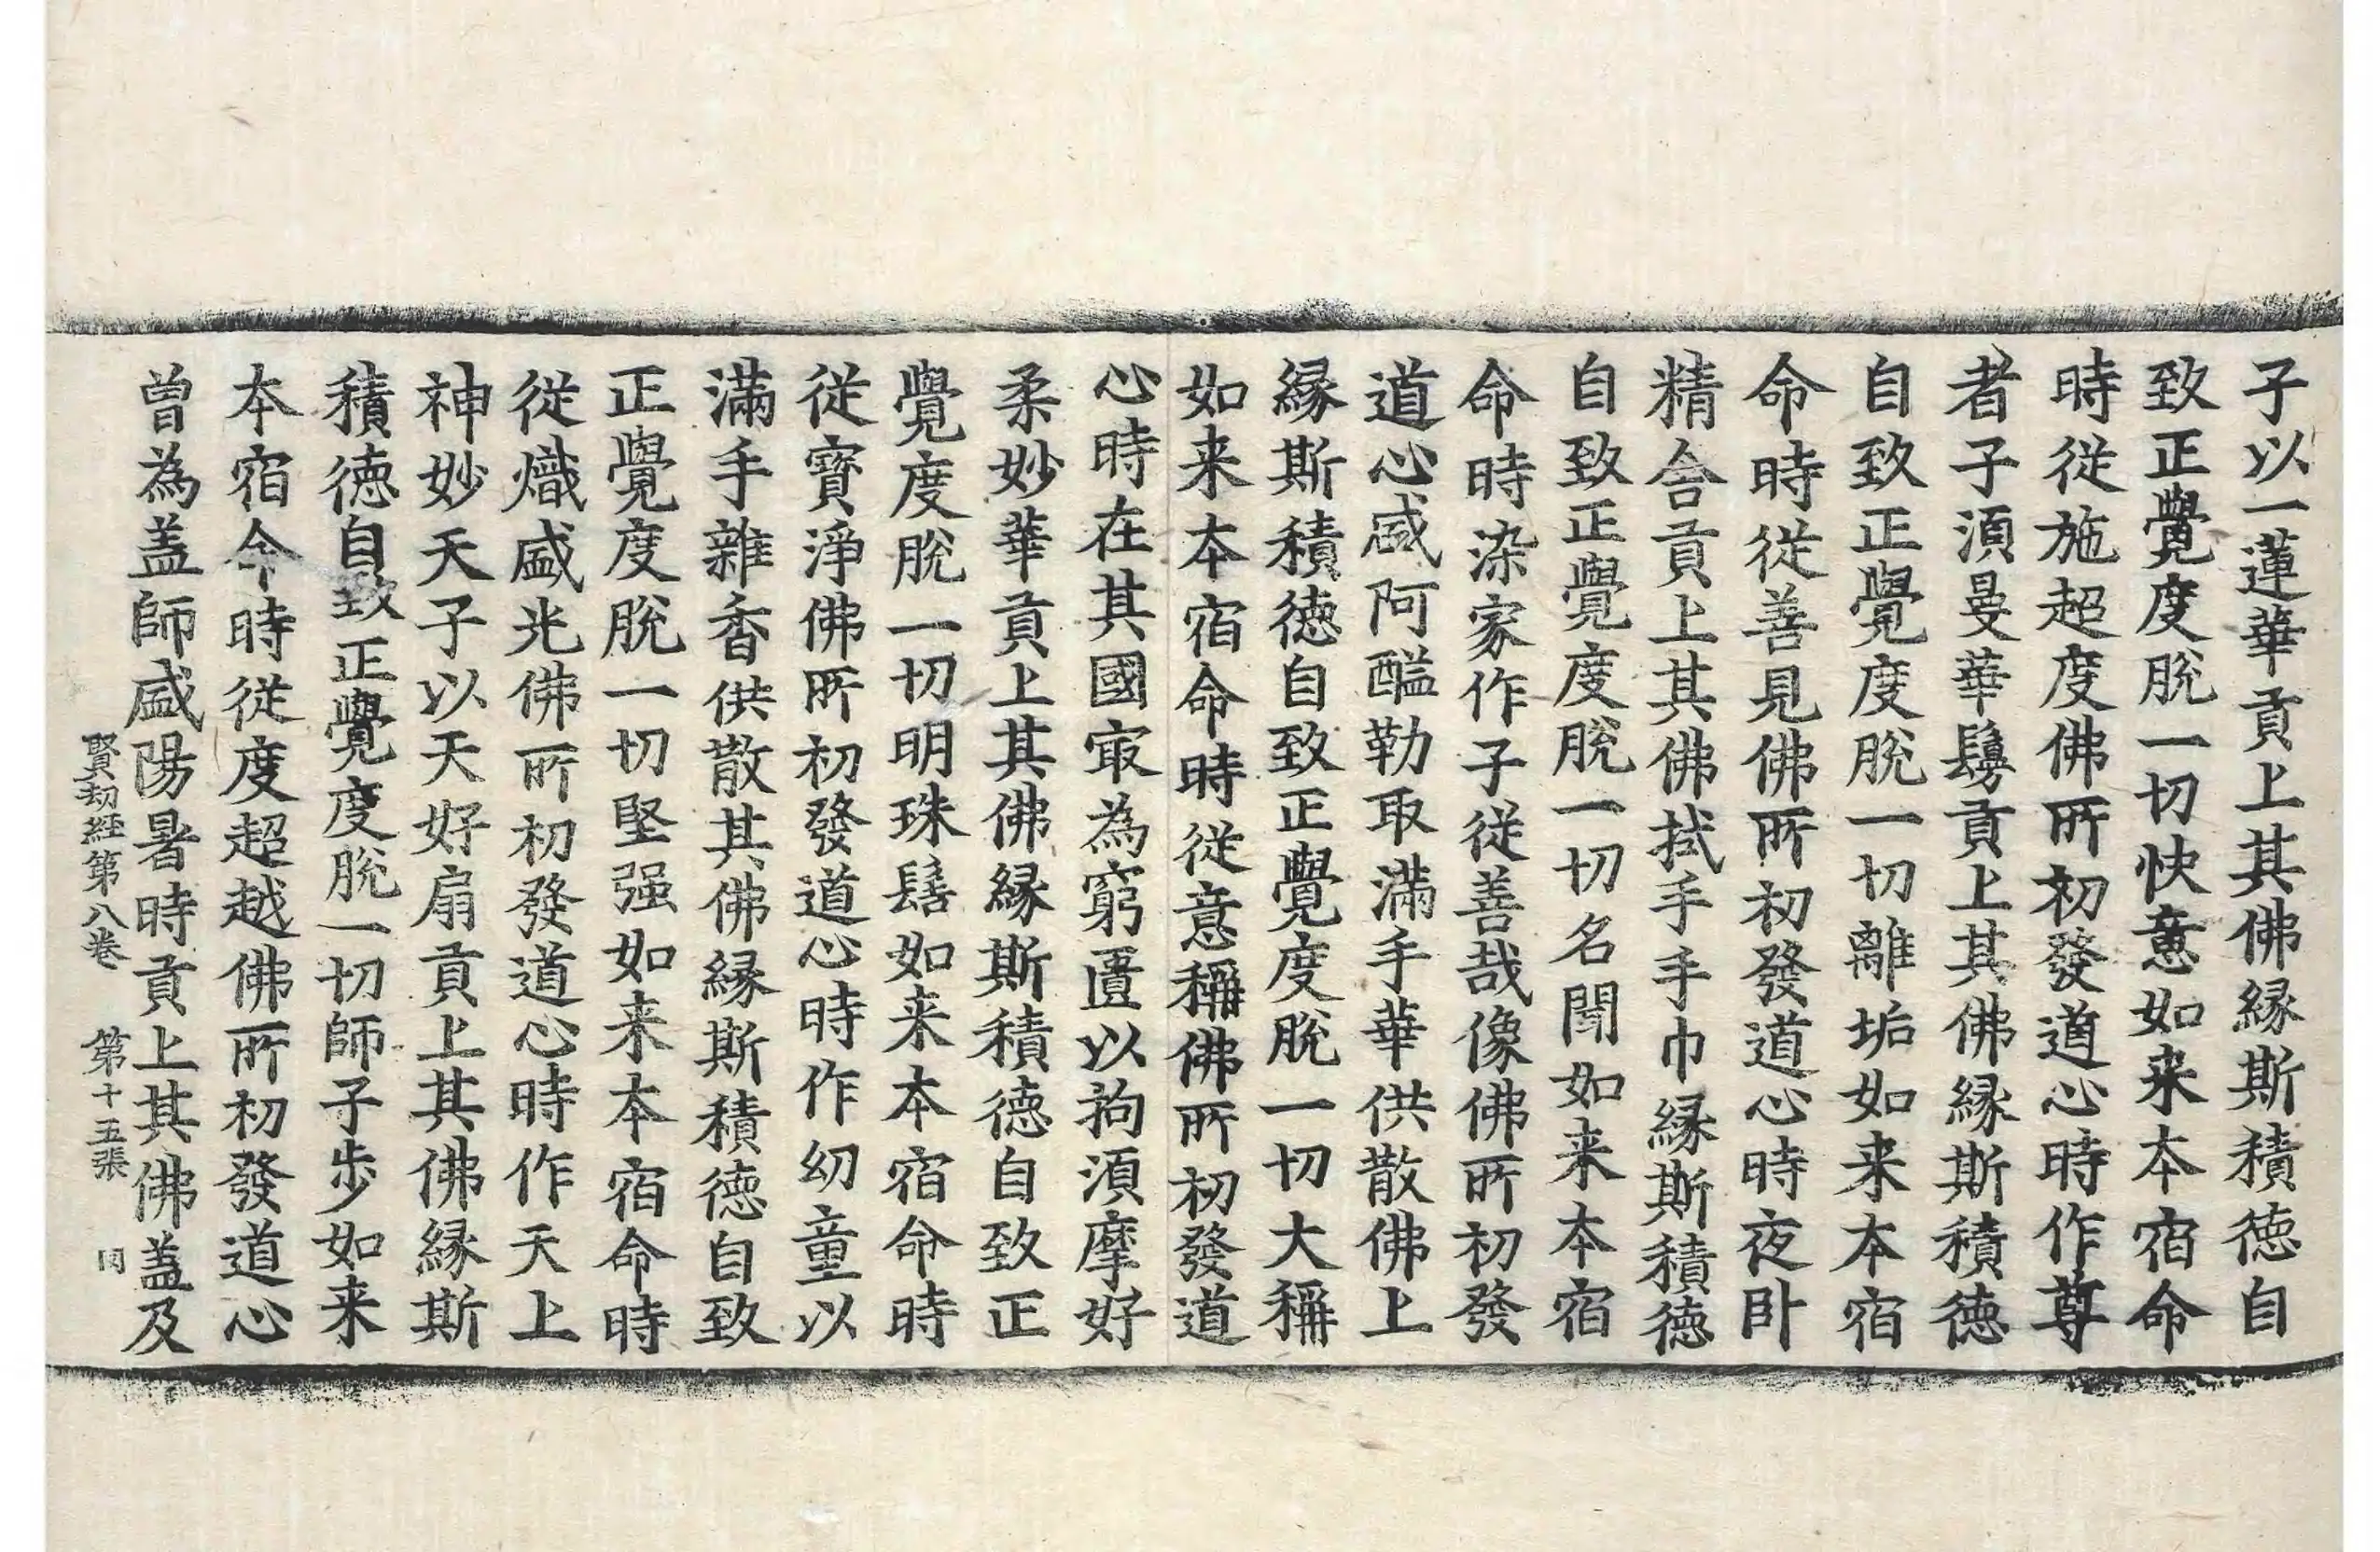 子以一蓮華貢上其佛縁斯積徳自
致正覺度脫一切快意如来本宿命
時從施超度佛所初發道心時作尊
者子湏曼華鬘貢上其佛縁斯積徳
自致正覺度脫一切離垢如来本宿
命時從善見佛所初發道心時夜卧
精舍貢上其佛拭手手巾縁斯積徳
自致正覺度脫一切名聞如来本宿
命時染家作子從善哉像佛所初發
道心盛阿醯勒取滿手華供散佛上
縁斯積徳自致正覺度脫一切大稱
如来本宿命時從意稱佛所初發道
心時在其國㝡為窮匱以拘湏摩好
柔妙華貢上其佛縁斯積徳自致正
覺度脫一切明珠髻如来本宿命時
從寶淨佛所初發道心時作幼童以
滿手雜香供散其佛縁斯積徳自致
正覺度脫一切堅强如来本宿命時
從熾盛光佛所初發道心時作天上
神妙天子以天好扇貢上其佛縁斯
積徳自致正覺度脫一切師子步如来
本宿命時從度超越佛所初發道心
曽為盖師盛陽暑時貢上其佛盖及
賢劫經第八卷　第十五張　同